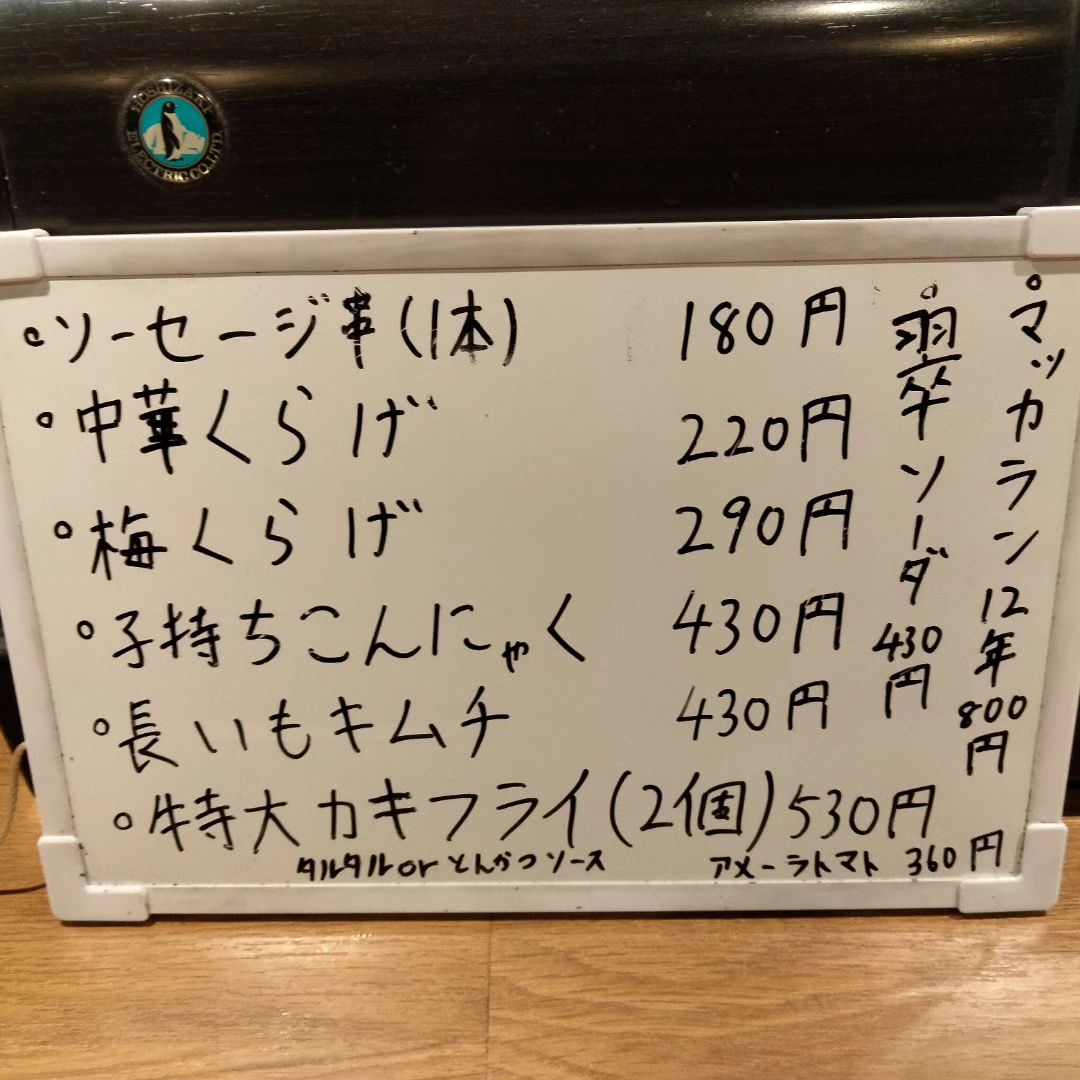 HOSHIZAKI ELECTRIC CO.,LTD.
ソーセージ串(1本) 180円
中華くらげ 220円
梅くらげ 290円
子持ちこんにゃく 430円
長いもキムチ 430円
特大カキフライ(2個) 530円
タルタル or とんかつソース
アメーラトマト 360円
マッカラン12年 800円
翠ソーダ 430円